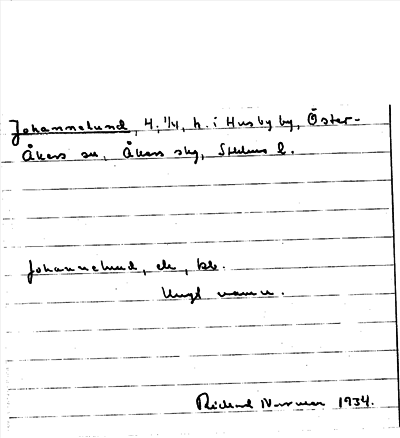 Johannelund, 4, 1/4, h. i Husby by, Öster-
Åkers sn, Åkers skg, Sthlms l.
Johannelund, ek, bb.
Ungt namn.
Rickard 1934.